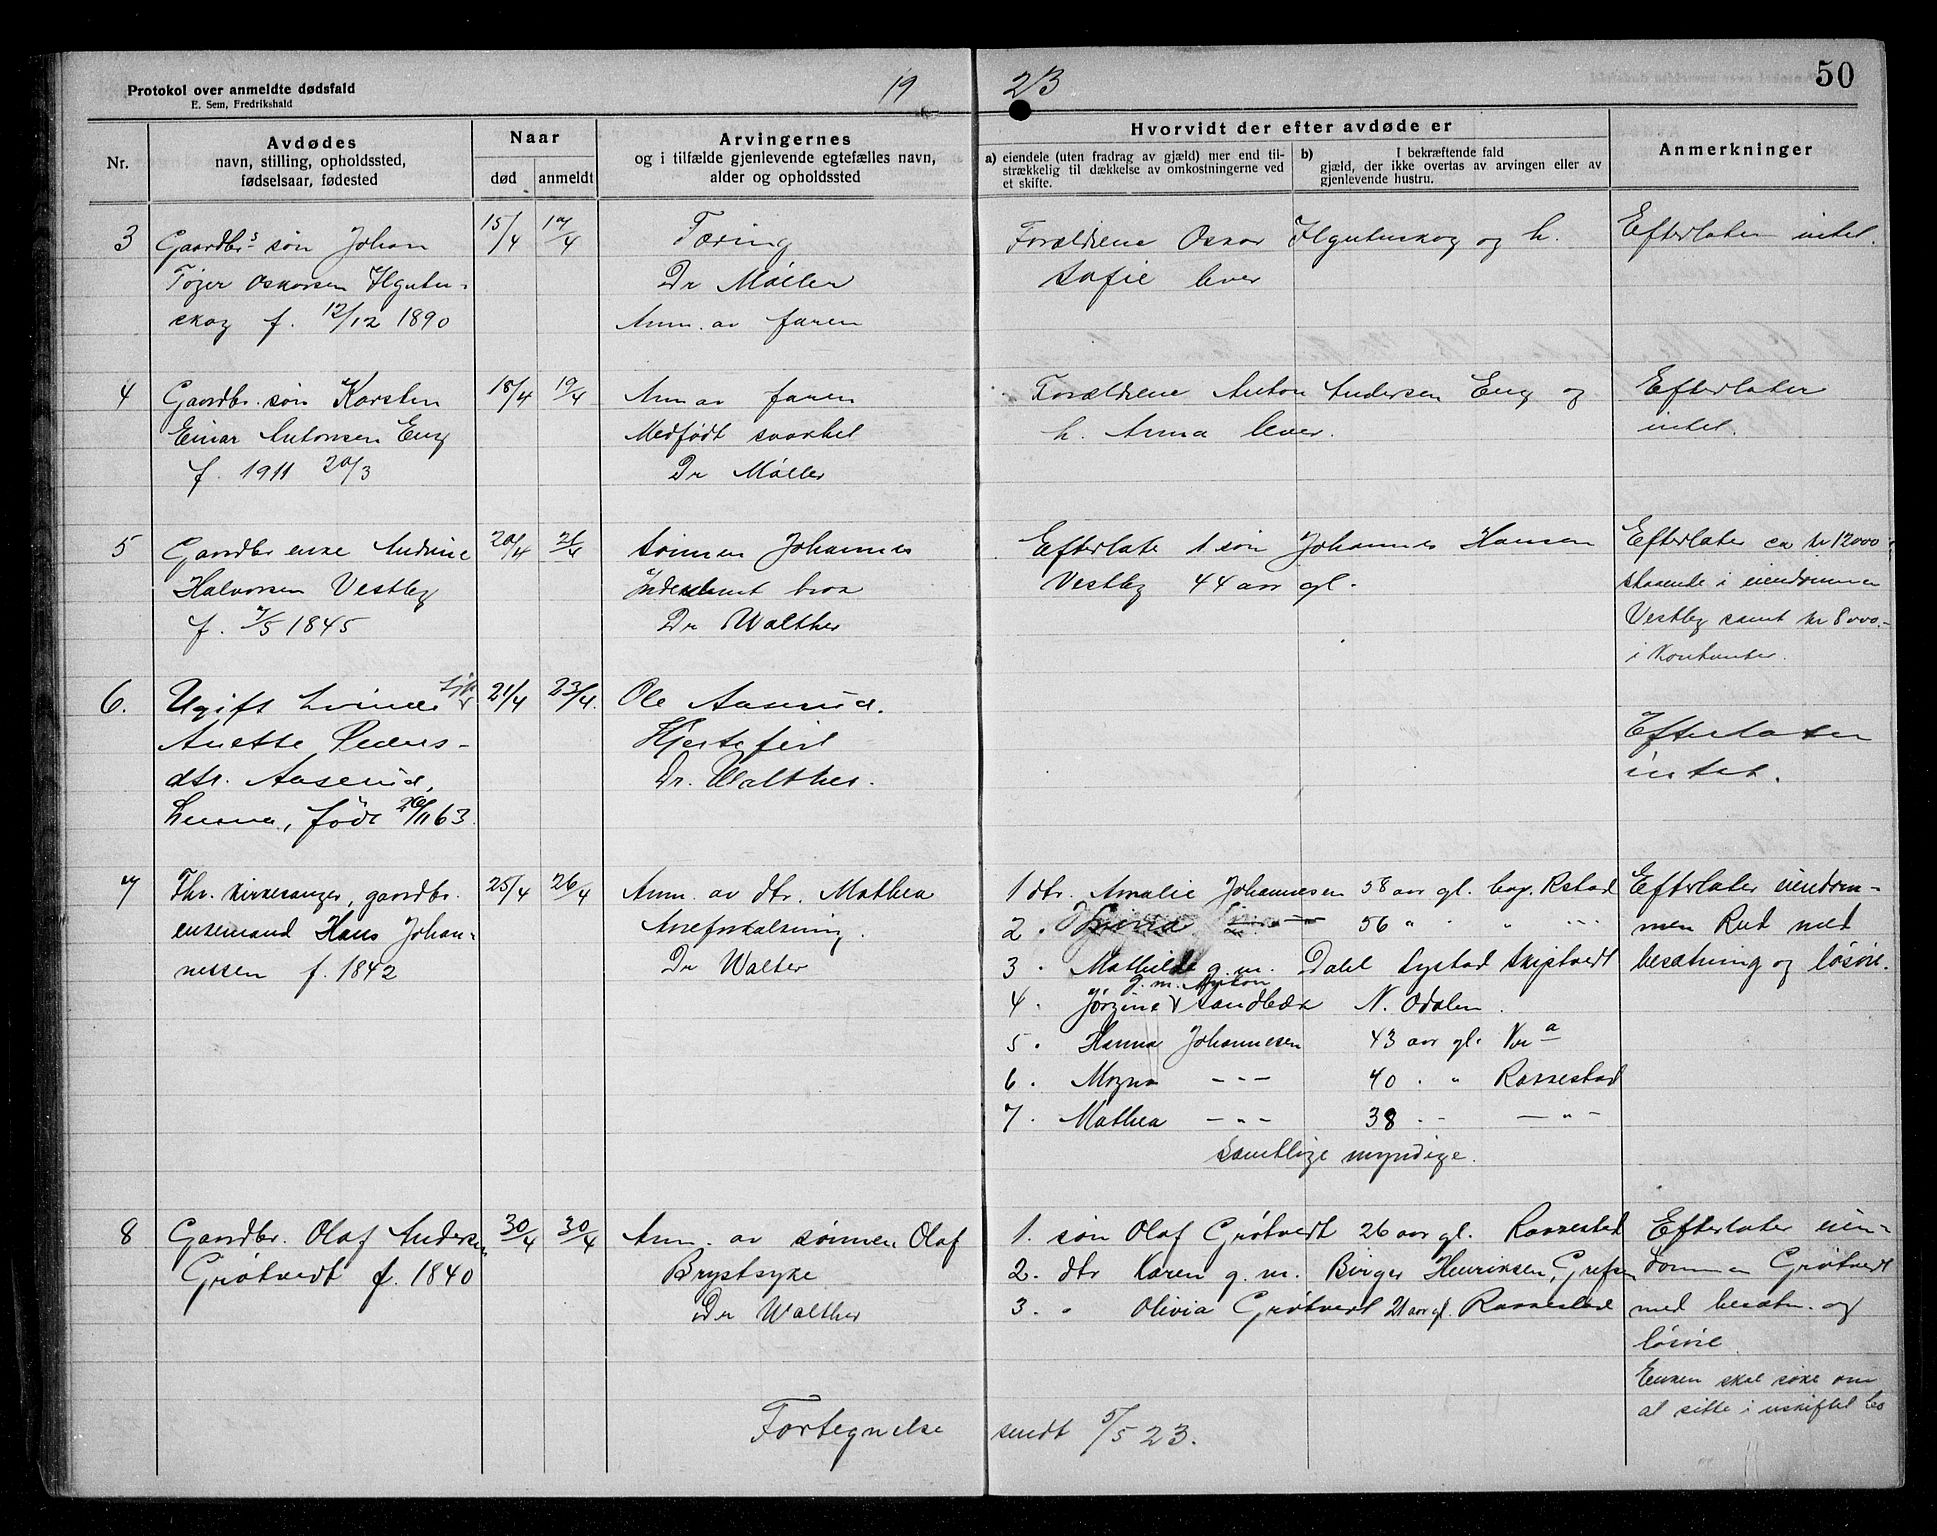 50
Protokol over anmeldte dødsfald
E. Sem, Fredrikshald
19 23
Nr.
Avdødes
navn, stilling, opholdssted,
fødselsaar, fødested
Naar
død
anmeldt
Arvingernes
og i tilfælde gjenlevende egtefælles navn,
alder og opholdssted
Hvorvidt der efter avdøde er
a) eiendele (uten fradrag av gjæld) mer end til-
strækkelig til dækkelse av omkostningerne ved
et skifte.
b) I bekræftende fald
gjæld, der ikke overtas av arvingen eller av
gjenlevende hustru.
Anmerkninger
3 Gaardbr.s søn Johan
Oskarsen
skog f. 12/12 1890
15/4
17/4
Tæring
Dr Møller
Anm. av faren
Forældrene Oskar og h.
Sofie lever
Efterlater intet.
4 Gaardbr. søn Karsten
Einar Antonsen Eng
f. 1911 20/3
18/4
19/4
Anm av faren
Medfødt svakhet
Dr Møller
Forældrene Anton Andersen Eng og
h. Anna lever.
Efterlater
intet.
5 Gaardbr enke Andrine
Halvorsen Vestby
f. 7/5 1845
20/4
21/4
Sønnen Johannes
Dr Walther
Efterlate 1 søn Johannes Hansen
Vestby 44 aar gl.
Efterlater ca kr 12000
staaende i eiendommen
Vestby samt kr 8000.-
i kontanter.
6. Ugift
Anette Peders-
dtr. Aaserud,
født 26/11 63.
21/4
23/4.
Ole Aaserud.
Hjertefeil
Dr. Walther.
Efterlater
intet.
7 Fhv. kirkesanger, gaardbr.
enkemand Hans Johan-
nessen f. 1842
25/4
26/4
Anm. av dtr. Mathea
Areforkalkning.
Dr Walter
1 dtr. Amalie Johannesen 58 aar gl. bop. Rstad
2 . 56 " " "
3 . Mathilde g. m. Dahl Lystad Skiptvedt
g. m. Anton
4 . Jørgine Sandbæk N. Odalen.
5 . Hanna Johannesen 43 aar gl. Kr.a
6 . Magna - - - 40 . " Rakkestad
7 . Mathea - " - 38 . - - " -
Samtlige myndige.
Efterlater eiendom-
men Rud med
besætning og løsøre.
8 Gaardbr. Olaf Andersen
Grøtvedt f. 1840
30/4
30/4
Anm. av sønnen Olaf
Brystsyke
Dr Walther
1. søn Olaf Grøtvedt 26 aar gl. Rakkestad
2. dtr Karen g. m. Birger Henriksen, Grefsen
3. " Olivia Grøtvedt 21 aar gl. Rakkestad
Efterlater eien-
dommen Grøtvedt
med besætn. og
løsøre.
Enken skal søke om
at sitte i uskiftet bo
Fortegnelse sendt 5/5 23.